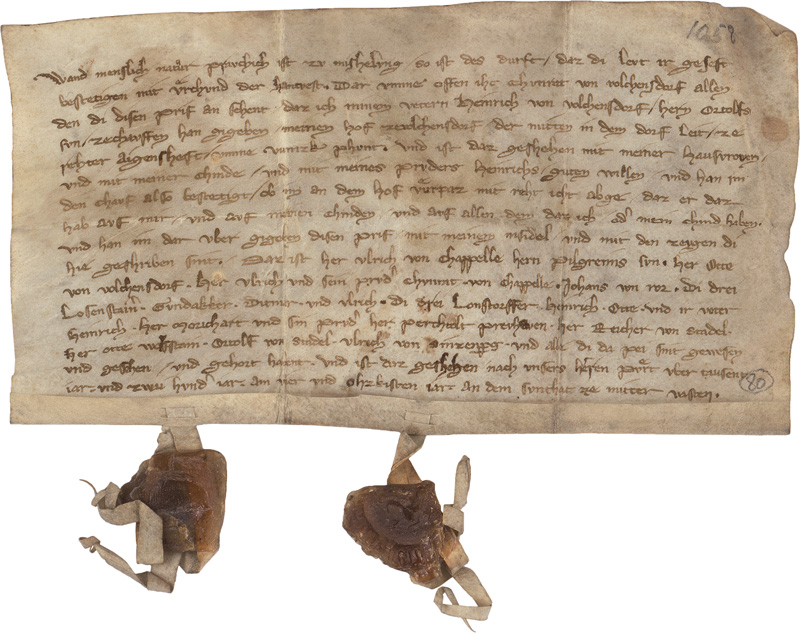 1058
Wand menslich natur prvchich ist zv mishelvng so ist des durft / daz di levt ir geseft
bestetigen mit vrchvnd der hantvest. Dar vmme offen ihc chvnrat von volchensdorf allen
den di disen prif an sehent daz ich minem vetern Heinrich von volchensdorf / hern Ortolfs
svn / ze chavffen han gigeben meinem hof ze volchensdorf der mitten in dem dorf leit / ze
rehter aigenscheft / vmme phvnt. Vnd ist daz geschehen mit meiner Havsvrowen /
vnd mit meiner chinde / vnd mit meines prvders Heinrichs / guten willen / vnd han im
den chavf also bestetigt / ob im an dem hof mit reht icht abge daz er daz
hab avf mir / vnd avf meinen chinden / vnd avf allem dem daz ich od mein chind haben.
vnd han im dar vber gigeben disen prif mit meinem insigel vnd mit den zevgen di
hie geshriben sint. Daz ist her vlrich von Chappelle hern pilgreims svn. Her Otte
von volchensdorf. Her vlrich vnd sein prvd chvnrat von chappelle. Johans von ror. di drei
Losenstain. Gvndakker. Ditmar. vnd vlrich. Di drei Lonstorffer. Heinrich. Otte. vnd ir veter
Heinrich. Her Meinchart vnd sin prvd her perchtolt prevhaven. Her Reicher von Stadel.
Her otte. Ortolf von Stadel. vlrich von. vnd alle di da pei sint gewesen
vnd gesehen / vnd gehort habent. vnd ist daz geshehen nach vnsers herren pvrt vber tavsent
iar. vnd zwai hvnd iar. an vier vnd ahzkisten iar. an dem svntag ze mitter vasten.
80